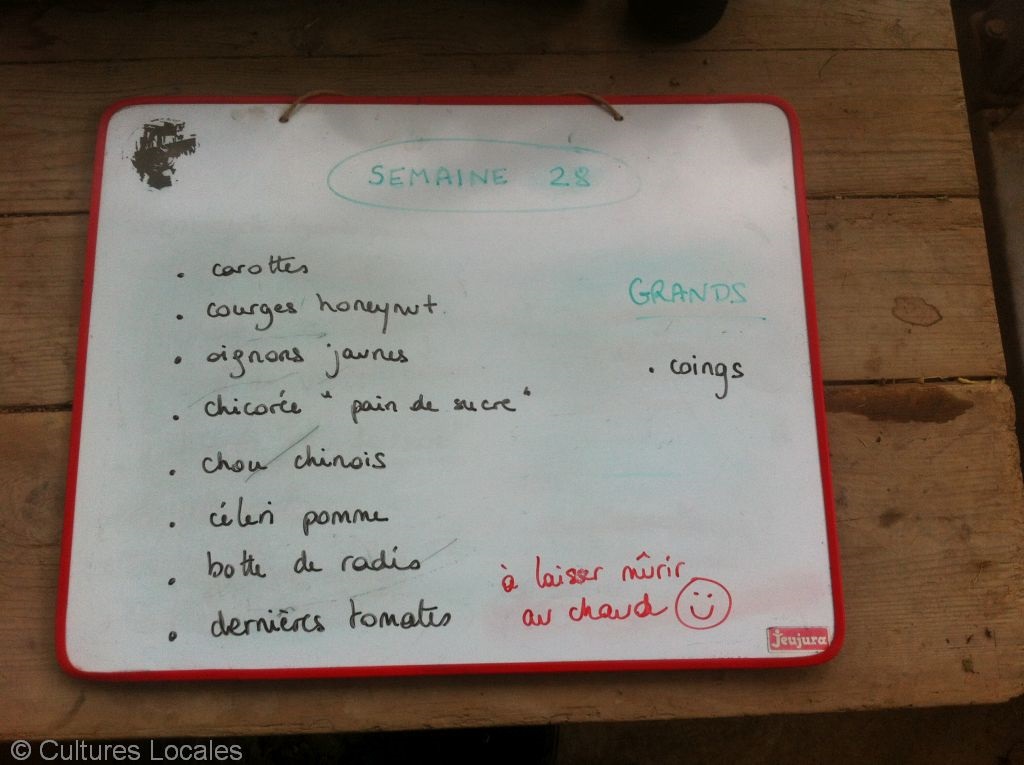 SEMAINE 28
• carottes
• courges honeynut
• oignons jaunes
• chicorée "pain de sucre"
• chou chinois
• céleri pomme
• botte de radis
• dernières tomates
à laisser mûrir
au chaud
GRANDS
• coings
Jeujura
© Cultures Locales